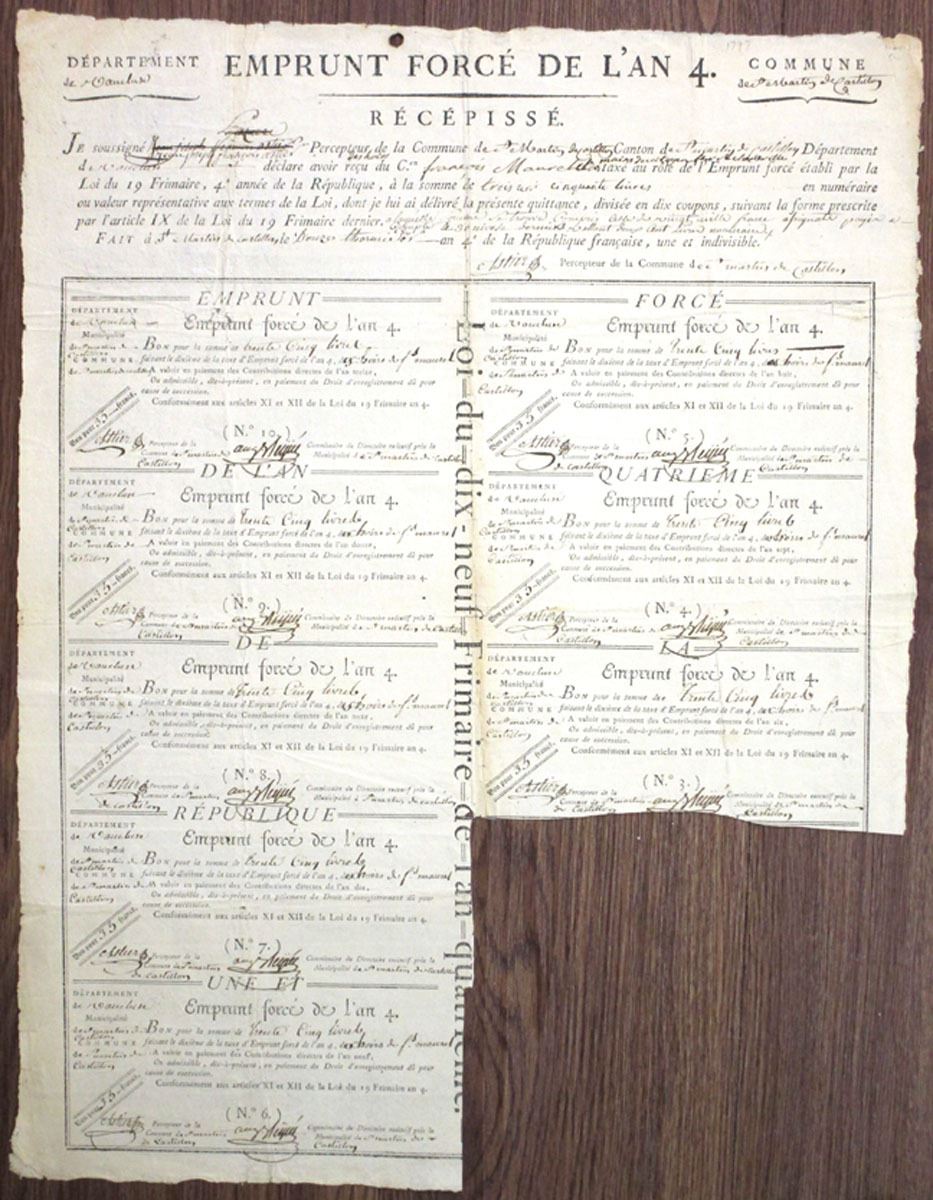 1797
DÉPARTEMENT
de Vaucluse
EMPRUNT FORCÉ DE L'AN 4.
COMMUNE
de St Martin de Castillon
RÉCÉPISSÉ.
JE soussigné Percepteur de la Commune de St Martin de Castillon Canton de St Martin de Castillon Département
de Vaucluse déclare avoir reçu du C.en françois Maurel taxé au rôle de l'Emprunt forcé établi par la
Loi du 19 Frimaire, 4.e année de la République, à la somme de trois cent cinquante livres en numéraire
ou valeur représentative aux termes de la Loi, dont je lui ai délivré la présente quittance, divisée en dix coupons, suivant la forme prescrite
par l'article IX de la Loi du 19 Frimaire dernier.
FAIT à St Martin de Castillon le douze thermidor an 4.e de la République française, une et indivisible.
Astier Percepteur de la Commune de St martin de Castillon
EMPRUNT
DÉPARTEMENT
de Vaucluse
Municipalité
de St martin de Castillon
COMMUNE
de St martin de Castillon
Emprunt forcé de l'an 4.
BON pour la somme de trente Cinq livres
faisant le dixième de la taxe d'Emprunt forcé de l'an 4, aux hoirs de fs maurel
A valoir en paiement des Contributions directes de l'an treize.
Ou admissible, dès-à-présent, en paiement du Droit d'enregistrement dû pour
cause de succession.
Conformément aux articles XI et XII de la Loi du 19 Frimaire an 4.
Bon pour 35 francs.
(N.° 10.)
Astier Percepteur de la Commune de St martin de Castillon
Commissaire du Directoire exécutif près la Municipalité de St martin de Castillon
DE L'AN
DÉPARTEMENT
de Vaucluse
Municipalité
de St martin de Castillon
COMMUNE
de St martin de Castillon
Emprunt forcé de l'an 4.
BON pour la somme de trente Cinq livres
faisant le dixième de la taxe d'Emprunt forcé de l'an 4, aux hoirs de fs maurel
A valoir en paiement des Contributions directes de l'an douze.
Ou admissible, dès-à-présent, en paiement du Droit d'enregistrement dû pour
cause de succession.
Conformément aux articles XI et XII de la Loi du 19 Frimaire an 4.
Bon pour 35 francs.
(N.° 9.)
Astier Percepteur de la Commune de St martin de Castillon
Commissaire du Directoire exécutif près la Municipalité de St martin de Castillon
DE
DÉPARTEMENT
de Vaucluse
Municipalité
de St martin de Castillon
COMMUNE
de St martin de Castillon
Emprunt forcé de l'an 4.
BON pour la somme de trente Cinq livres
faisant le dixième de la taxe d'Emprunt forcé de l'an 4, aux hoirs de fs maurel
A valoir en paiement des Contributions directes de l'an onze.
Ou admissible, dès-à-présent, en paiement du Droit d'enregistrement dû pour
cause de succession.
Conformément aux articles XI et XII de la Loi du 19 Frimaire an 4.
Bon pour 35 francs.
(N.° 8.)
Astier Percepteur de la Commune de St martin de Castillon
Commissaire du Directoire exécutif près la Municipalité de St martin de Castillon
RÉPUBLIQUE
DÉPARTEMENT
de Vaucluse
Municipalité
de St martin de Castillon
COMMUNE
de St martin de Castillon
Emprunt forcé de l'an 4.
BON pour la somme de trente Cinq livres
faisant le dixième de la taxe d'Emprunt forcé de l'an 4, aux hoirs de fs maurel
A valoir en paiement des Contributions directes de l'an dix.
Ou admissible, dès-à-présent, en paiement du Droit d'enregistrement dû pour
cause de succession.
Conformément aux articles XI et XII de la Loi du 19 Frimaire an 4.
Bon pour 35 francs.
(N.° 7.)
Astier Percepteur de la Commune de St martin de Castillon
Commissaire du Directoire exécutif près la Municipalité de St martin de Castillon
UNE ET
DÉPARTEMENT
de Vaucluse
Municipalité
de St martin de Castillon
COMMUNE
de St martin de Castillon
Emprunt forcé de l'an 4.
BON pour la somme de trente Cinq livres
faisant le dixième de la taxe d'Emprunt forcé de l'an 4, aux hoirs de fs maurel
A valoir en paiement des Contributions directes de l'an neuf.
Ou admissible, dès-à-présent, en paiement du Droit d'enregistrement dû pour
cause de succession.
Conformément aux articles XI et XII de la Loi du 19 Frimaire an 4.
Bon pour 35 francs.
(N.° 6.)
Astier Percepteur de la Commune de St martin de Castillon
Commissaire du Directoire exécutif près la Municipalité de St martin de Castillon
Loi-du-dix-neuf-Frimaire-de-l'an-quatrième.
FORCÉ
DÉPARTEMENT
de Vaucluse
Municipalité
de St martin de Castillon
COMMUNE
de St martin de Castillon
Emprunt forcé de l'an 4.
BON pour la somme de trente Cinq livres
faisant le dixième de la taxe d'Emprunt forcé de l'an 4, aux hoirs de fs maurel
A valoir en paiement des Contributions directes de l'an huit.
Ou admissible, dès-à-présent, en paiement du Droit d'enregistrement dû pour
cause de succession.
Conformément aux articles XI et XII de la Loi du 19 Frimaire an 4.
Bon pour 35 francs.
(N.° 5.)
Astier Percepteur de la Commune de St martin de Castillon
Commissaire du Directoire exécutif près la Municipalité de St martin de Castillon
QUATRIÈME
DÉPARTEMENT
de Vaucluse
Municipalité
de St martin de Castillon
COMMUNE
de St martin de Castillon
Emprunt forcé de l'an 4.
BON pour la somme de trente Cinq livres
faisant le dixième de la taxe d'Emprunt forcé de l'an 4, aux hoirs de fs maurel
A valoir en paiement des Contributions directes de l'an sept.
Ou admissible, dès-à-présent, en paiement du Droit d'enregistrement dû pour
cause de succession.
Conformément aux articles XI et XII de la Loi du 19 Frimaire an 4.
Bon pour 35 francs.
(N.° 4.)
Astier Percepteur de la Commune de St martin de Castillon
Commissaire du Directoire exécutif près la Municipalité de St martin de Castillon
LA
DÉPARTEMENT
de Vaucluse
Municipalité
de St martin de Castillon
COMMUNE
de St martin de Castillon
Emprunt forcé de l'an 4.
BON pour la somme de trente Cinq livres
faisant le dixième de la taxe d'Emprunt forcé de l'an 4, aux hoirs de fs maurel
A valoir en paiement des Contributions directes de l'an six.
Ou admissible, dès-à-présent, en paiement du Droit d'enregistrement dû pour
cause de succession.
Conformément aux articles XI et XII de la Loi du 19 Frimaire an 4.
Bon pour 35 francs.
(N.° 3.)
Astier Percepteur de la Commune de St martin de Castillon
Commissaire du Directoire exécutif près la Municipalité de St martin de Castillon